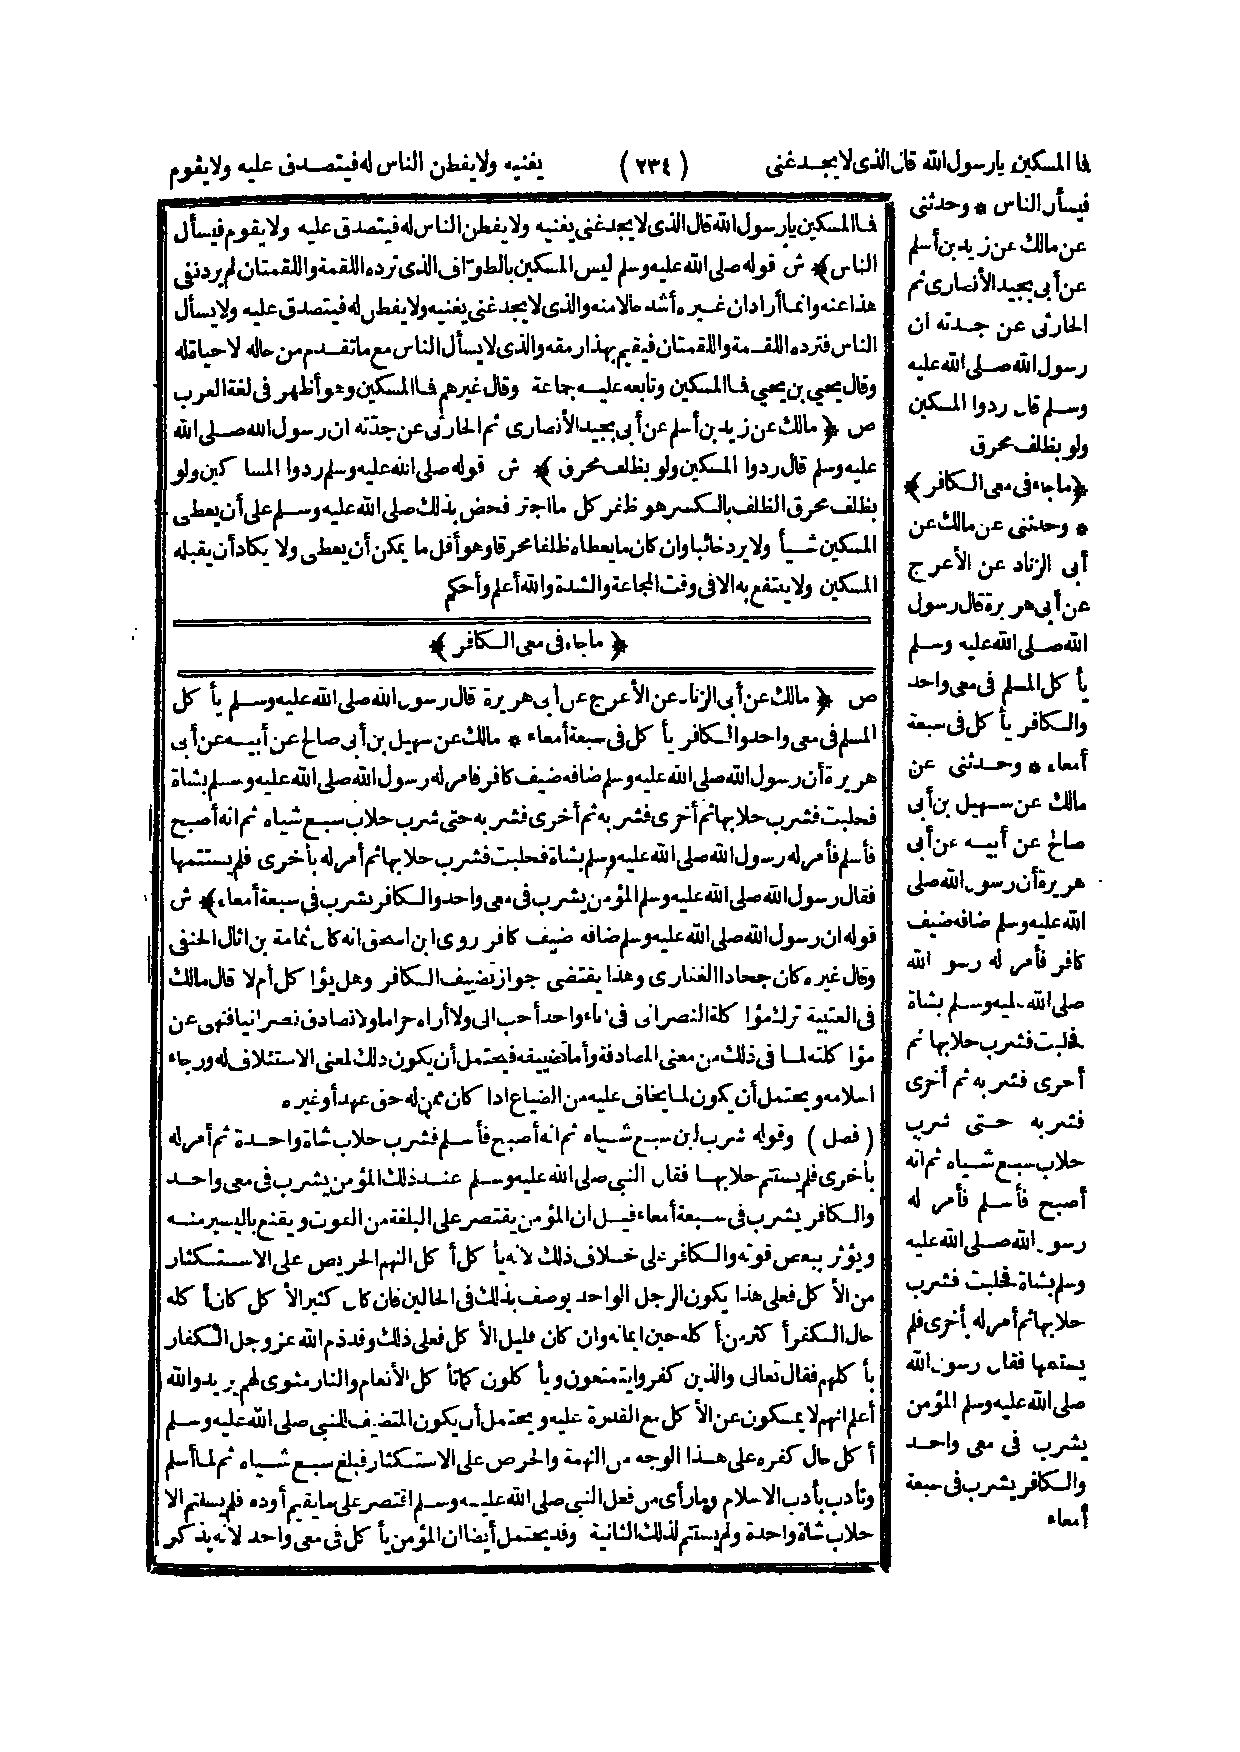 فا المسكين يارسول الله قال الذى لا يجد غنى (٢٣٤) يغنيه ولا يفطن الناس له فيتصدق عليه ولا يقوم
فيسأل الناس * وحدثنى
عن مالك عن زيد بن أسلم
عن أبى بجيد الأنصارى ثم
الحارثى عن جدته ان
رسول الله صلى الله عليه
وسلم قال ردوا المسكين
ولو بظلف محرق
﴿ماجاء فى معى الكافر﴾
* وحدثنى عن مالك عن
أبى الزناد عن الأعرج
عن أبى هريرة قال رسول
الله صلى الله عليه وسلم
يأكل المسلم فى معى واحد
والكافر يأكل فى سبعة
أمعاء * وحدثنى عن
مالك عن سهيل بن أبى
صالح عن أبيه عن أبى
هريرة أن رسول الله صلى
الله عليه وسلم ضافه ضيف
كافر فأمر له رسول الله
صلى الله عليه وسلم بشاة
فحلبت فشرب حلابها ثم
أخرى فشربه ثم أخرى
فشربه حتى شرب
حلاب سبع شياه ثم انه
أصبح فأسلم فأمر له
رسول الله صلى الله عليه
وسلم بشاة فحلبت فشرب
حلابها ثم أمر له بأخرى فلم
يستتمها فقال رسول الله
صلى الله عليه وسلم المؤمن
يشرب فى معى واحد
والكافر يشرب فى سبعة
أمعاء
فا المسكين يارسول الله قال الذى لا يجد غنى يغنيه ولا يفطن الناس له فيتصدق عليه ولا يقوم فيسأل
الناس﴾ ش قوله صلى الله عليه وسلم ليس المسكين بالطوّاف الذى ترده اللقمة واللقمتان لم يرد نفى
هذا عنه وانما أراد ان غيره أشد حالا منه والذى لا يجد غنى يغنيه ولا يفطن له فيتصدق عليه ولا يسأل
الناس فترده اللقمة واللقمتان فيقيم بهذا رمقه والذى لا يسأل الناس مع ما تقدم من حاله لا حياة له
وقال يحيى بن يحيى فا المسكين وتابعه عليه جماعة وقال غيرهم فا المسكين وهو أظهر فى لغة العرب
ص ﴿ مالك عن زيد بن أسلم عن أبى بجيد الأنصارى ثم الحارثى عن جدّته ان رسول الله صلى الله
عليه وسلم قال ردوا المسكين ولو بظلف محرق ﴾ ش قوله صلى الله عليه وسلم ردوا المساكين ولو
بظلف محرق الظلف بالكسر هو ظفر كل ما اجتر فحض بذلك صلى الله عليه وسلم على أن يعطى
المسكين شيأ ولا يرد خائبا وان كان ما يعطاه ظلفا محرقا وهو أقل ما يمكن أن يعطى ولا يكاد أن يقبله
المسكين ولا ينتفع به الا فى وقت المجاعة والشدة والله أعلم وأحكم
﴿ ماجاء فى معى الكافر ﴾
ص ﴿ مالك عن أبى الزناد عن الأعرج عن أبى هريرة قال رسول الله صلى الله عليه وسلم يأكل
المسلم فى معى واحد والكافر يأكل فى سبعة أمعاء * مالك عن سهيل بن أبى صالح عن أبيه عن أبى
هريرة أن رسول الله صلى الله عليه وسلم ضافه ضيف كافر فأمر له رسول الله صلى الله عليه وسلم بشاة
فحلبت فشرب حلابها ثم أخرى فشربه ثم أخرى فشربه حتى شرب حلاب سبع شياه ثم انه أصبح
فأسلم فأمر له رسول الله صلى الله عليه وسلم بشاة فحلبت فشرب حلابها ثم أمر له بأخرى فلم يستتمها
فقال رسول الله صلى الله عليه وسلم المؤمن يشرب فى معى واحد والكافر يشرب فى سبعة أمعاء﴾ ش
قوله ان رسول الله صلى الله عليه وسلم ضافه ضيف كافر روى ابن اسحق انه كان ثمامة بن اثال الحنفى
وقال غيره كان جحادا الغفارى وهذا يقتضى جواز تضييف الكافر وهل يؤاكل أم لا قال مالك
فى العتبية ترك مؤاكلة النصرانى فى اناء واحد أحب الى ولا أراه حراما ولا تصادق نصرانيا فنهى عن
مؤاكلته لما فى ذلك من معنى المصادقة وأما تضييفه فيحتمل أن يكون ذلك لمعنى الاستئلاف له ورجاء
اسلامه ويحتمل أن يكون لما يخاف عليه من الضياع اذا كان ممن له حق عهد أو غيره
(فصل) وقوله شرب لبن سبع شياه ثم انه أصبح فأسلم فشرب حلاب شاة واحدة ثم أمر له
بأخرى فلم يستتم حلابها فقال النبى صلى الله عليه وسلم عند ذلك المؤمن يشرب فى معى واحد
والكافر يشرب فى سبعة أمعاء قيل ان المؤمن يقتصر على البلغة من القوت ويقنع باليسير منه
ويؤثر ببعض قوته والكافر على خلاف ذلك لانه يأكل أكل النهم الحريص على الاستكثار
من الأكل فعلى هذا يكون الرجل الواحد يوصف بذلك فى الحالين فان كان كثير الأكل كان أكله
حال الكفر أكثر من أكله حين ايمانه وان كان قليل الأكل فعلى ذلك وقد ذم الله عز وجل الكفار
بأكلهم فقال تعالى والذين كفروا يتمتعون ويأكلون كما تأكل الأنعام والنار مثوى لهم يريد والله
أعلم انهم لا يمسكون عن الأكل مع القدرة عليه ويحتمل أن يكون المتضيف للنبى صلى الله عليه وسلم
أكل حال كفره على هذا الوجه من النهمة والحرص على الاستكثار فبلغ سبع شياه ثم لما أسلم
وتأدب بأدب الاسلام وبما رأى من فعل النبى صلى الله عليه وسلم اقتصر على ما يقيم أوده فلم يستتم الا
حلاب شاة واحدة ولم يستتم لذلك الثانية وقد يحتمل أيضا ان المؤمن يأكل فى معى واحد لانه يذكر